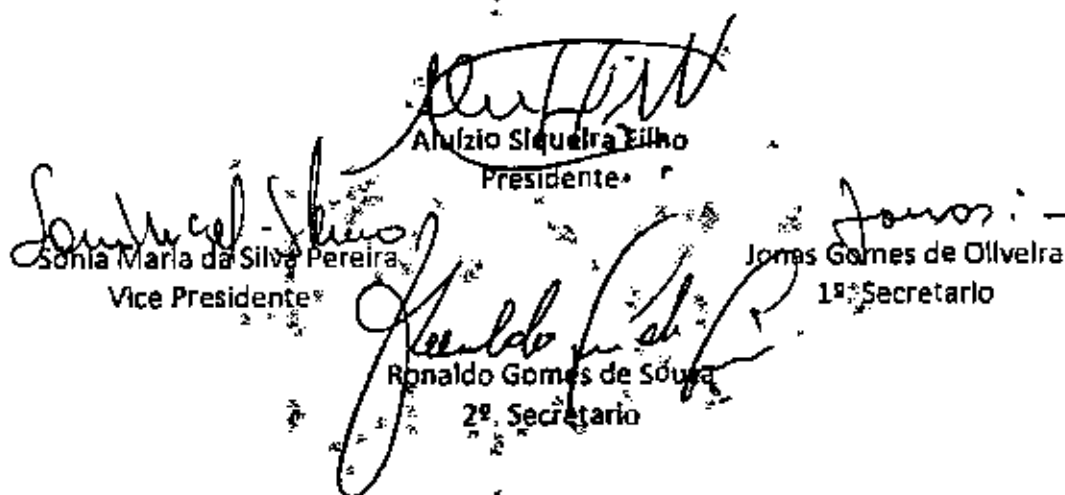 Aluízio Siqueira Filho
Presidente
Sonia Maria da Silva Pereira
Vice Presidente
Jonas Gomes de Oliveira
1º Secretario
Ronaldo Gomes de Sousa
2º. Secretario